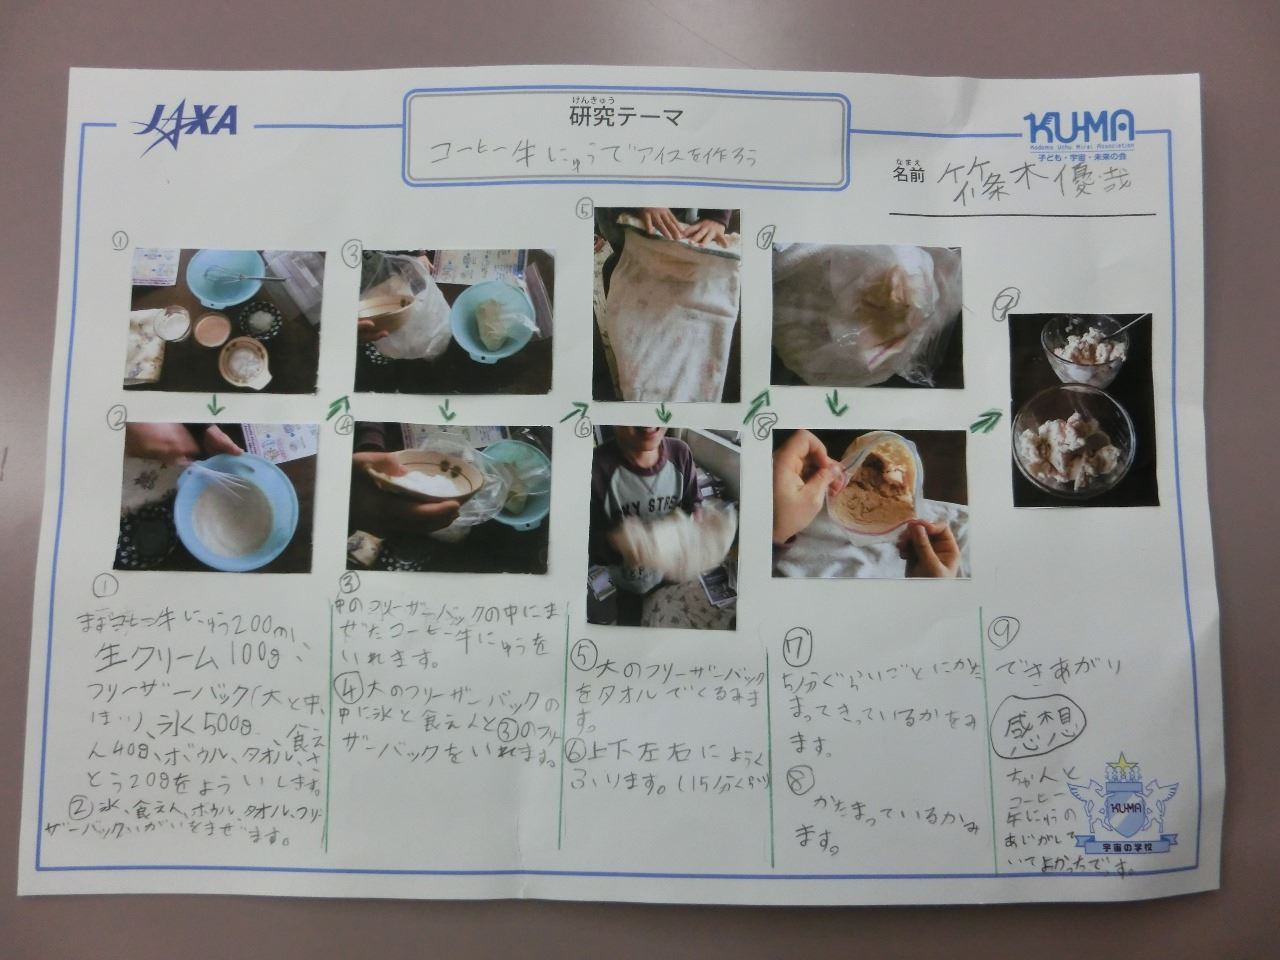 JAXA
けんきゅう
研究テーマ
コーヒー牛にゅうでアイスを作ろう
KU-MA
Kodomo Uchu Mirai Association
子ども・宇宙・未来の会
なまえ
名前 篠木優哉
①
②
③
④
⑤
⑥
⑦
⑧
⑨
①
まずコーヒー牛にゅう200ml、
生クリーム100g、
フリーザーバック(大と中、
氷500g、食えん
40g、ボウル、タオル、さ
とう20gをよういします。
②氷、食えん、ボウル、タオル、フリー
ザーバックいがいをまぜます。
③
中のフリーザーバックの中にま
ぜたコーヒー牛にゅうを
いれます。
④大のフリーザーバックの
中に氷と食えんと③のフリー
ザーバックをいれます。
⑤大のフリーザーバック
をタオルでくるみま
す。
⑥上下左右にようく
ふります。(15分くらい)
⑦
5分ぐらいごとにかた
まってきっているかをみ
ます。
⑧
かたまっているかみ
ます。
⑨
できあがり
感想
ちゃんと
コーヒー
牛にゅうの
あじがして
いてよかったです。
KU-MA
宇宙の学校